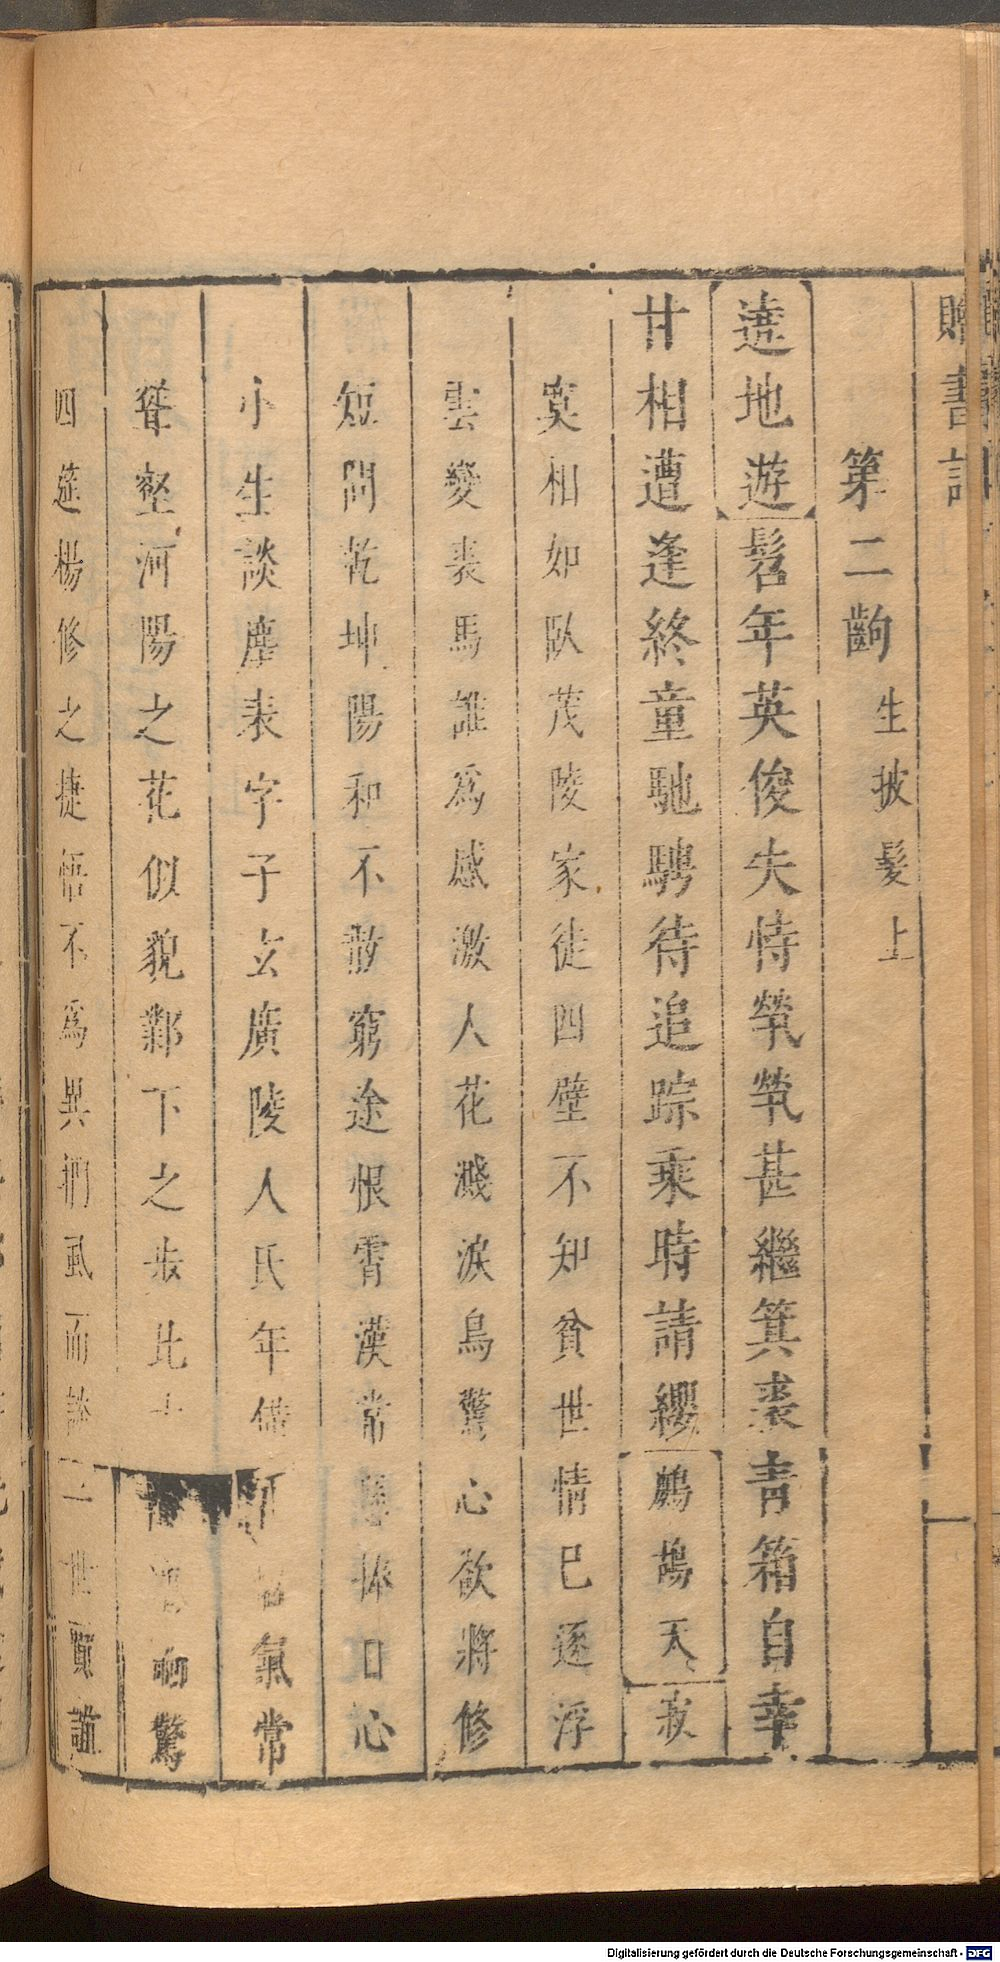 贈書記
第二齣 生披髮上
遶地遊 髫年英俊失恃煢煢甚繼箕裘青箱自幸
甘相遭逢終童馳騁待追踪乘時請纓 鷓鴣天 寂
寞相如臥茂陵家徒四壁不知貧世情已逐浮
雲變裘馬誰為感激人花濺淚鳥驚心欲將修
短問乾坤陽和不散窮途恨霄漢常 捧日心
小生談塵表字子玄廣陵人氏年 氣常
聳壑河陽之花似貌鄴下之 此 驚
四筵楊修之捷悟不為異捫虱而談 世 誰
Digitalisierung gefördert durch die Deutsche Forschungsgemeinschaft - DFG